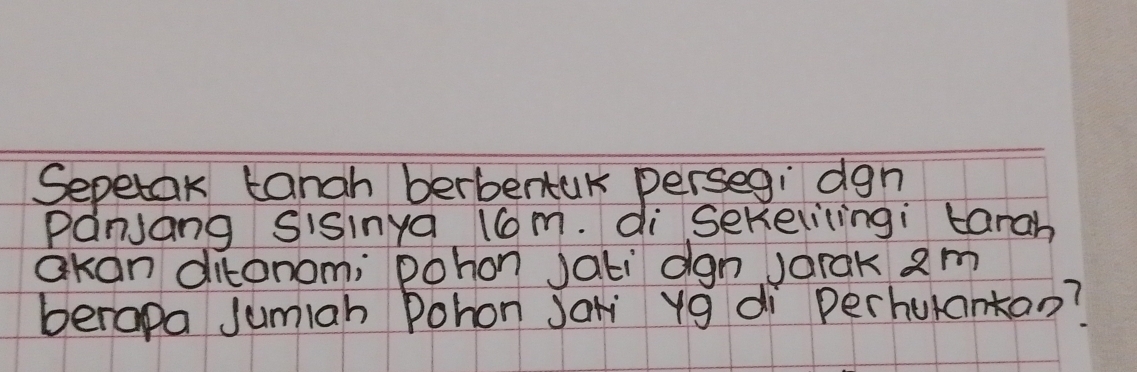 Sepetak tanah berbentuk persegi dgn
panjang sisinya 16 m. di sekelilingi tanah
akan ditanami pohon jati dgn jarak 2m
berapa jumlah pohon jati yg di perhutankan?